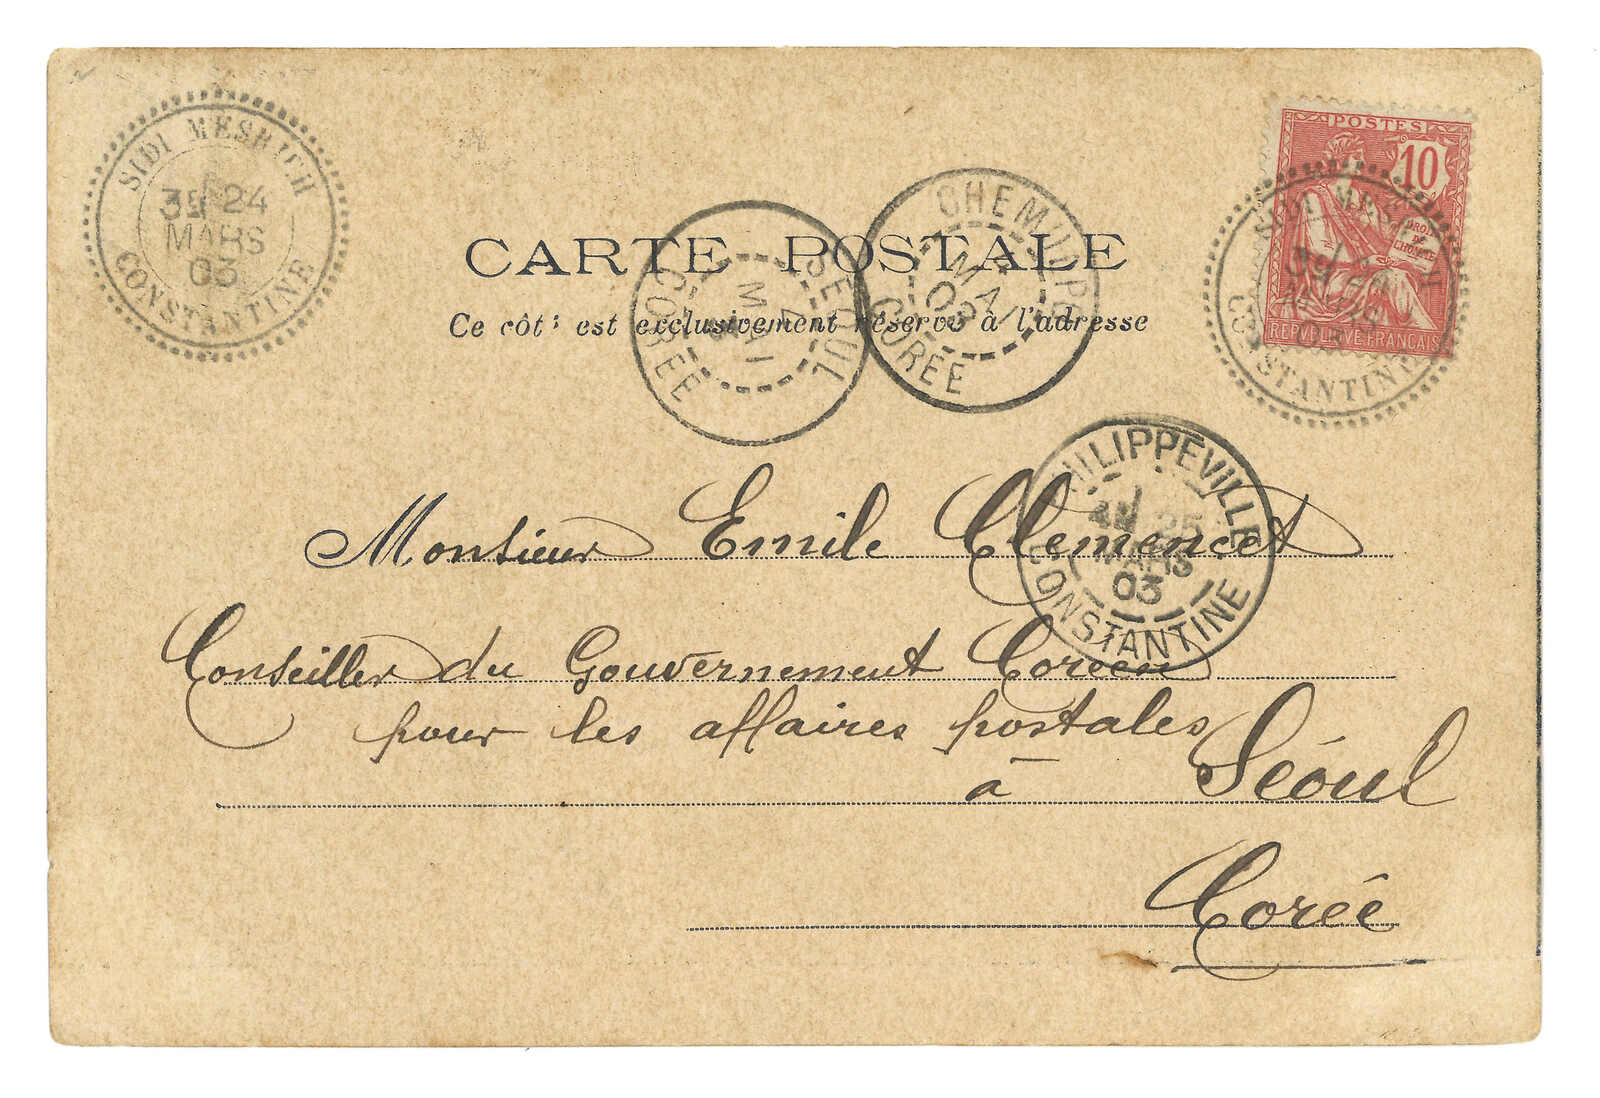 SIDI MESRICH
3E 24
MARS
03
CONSTANTINE
POSTES
10
DROITS
DE
L'HOMME
REPVBLIQVE FRANÇAISE
CONSTANTINE
CARTE POSTALE
Ce côté est exclusivement réservé à l'adresse
SEOUL
4
MAI
COREE
CHEMULPO
MAI
03
CORÉE
PHILIPPEVILLE
25
MARS
03
CONSTANTINE
Monsieur Emile Clemencet
Conseiller du Gouvernement Coréen
pour les affaires postales
à Séoul
Corée